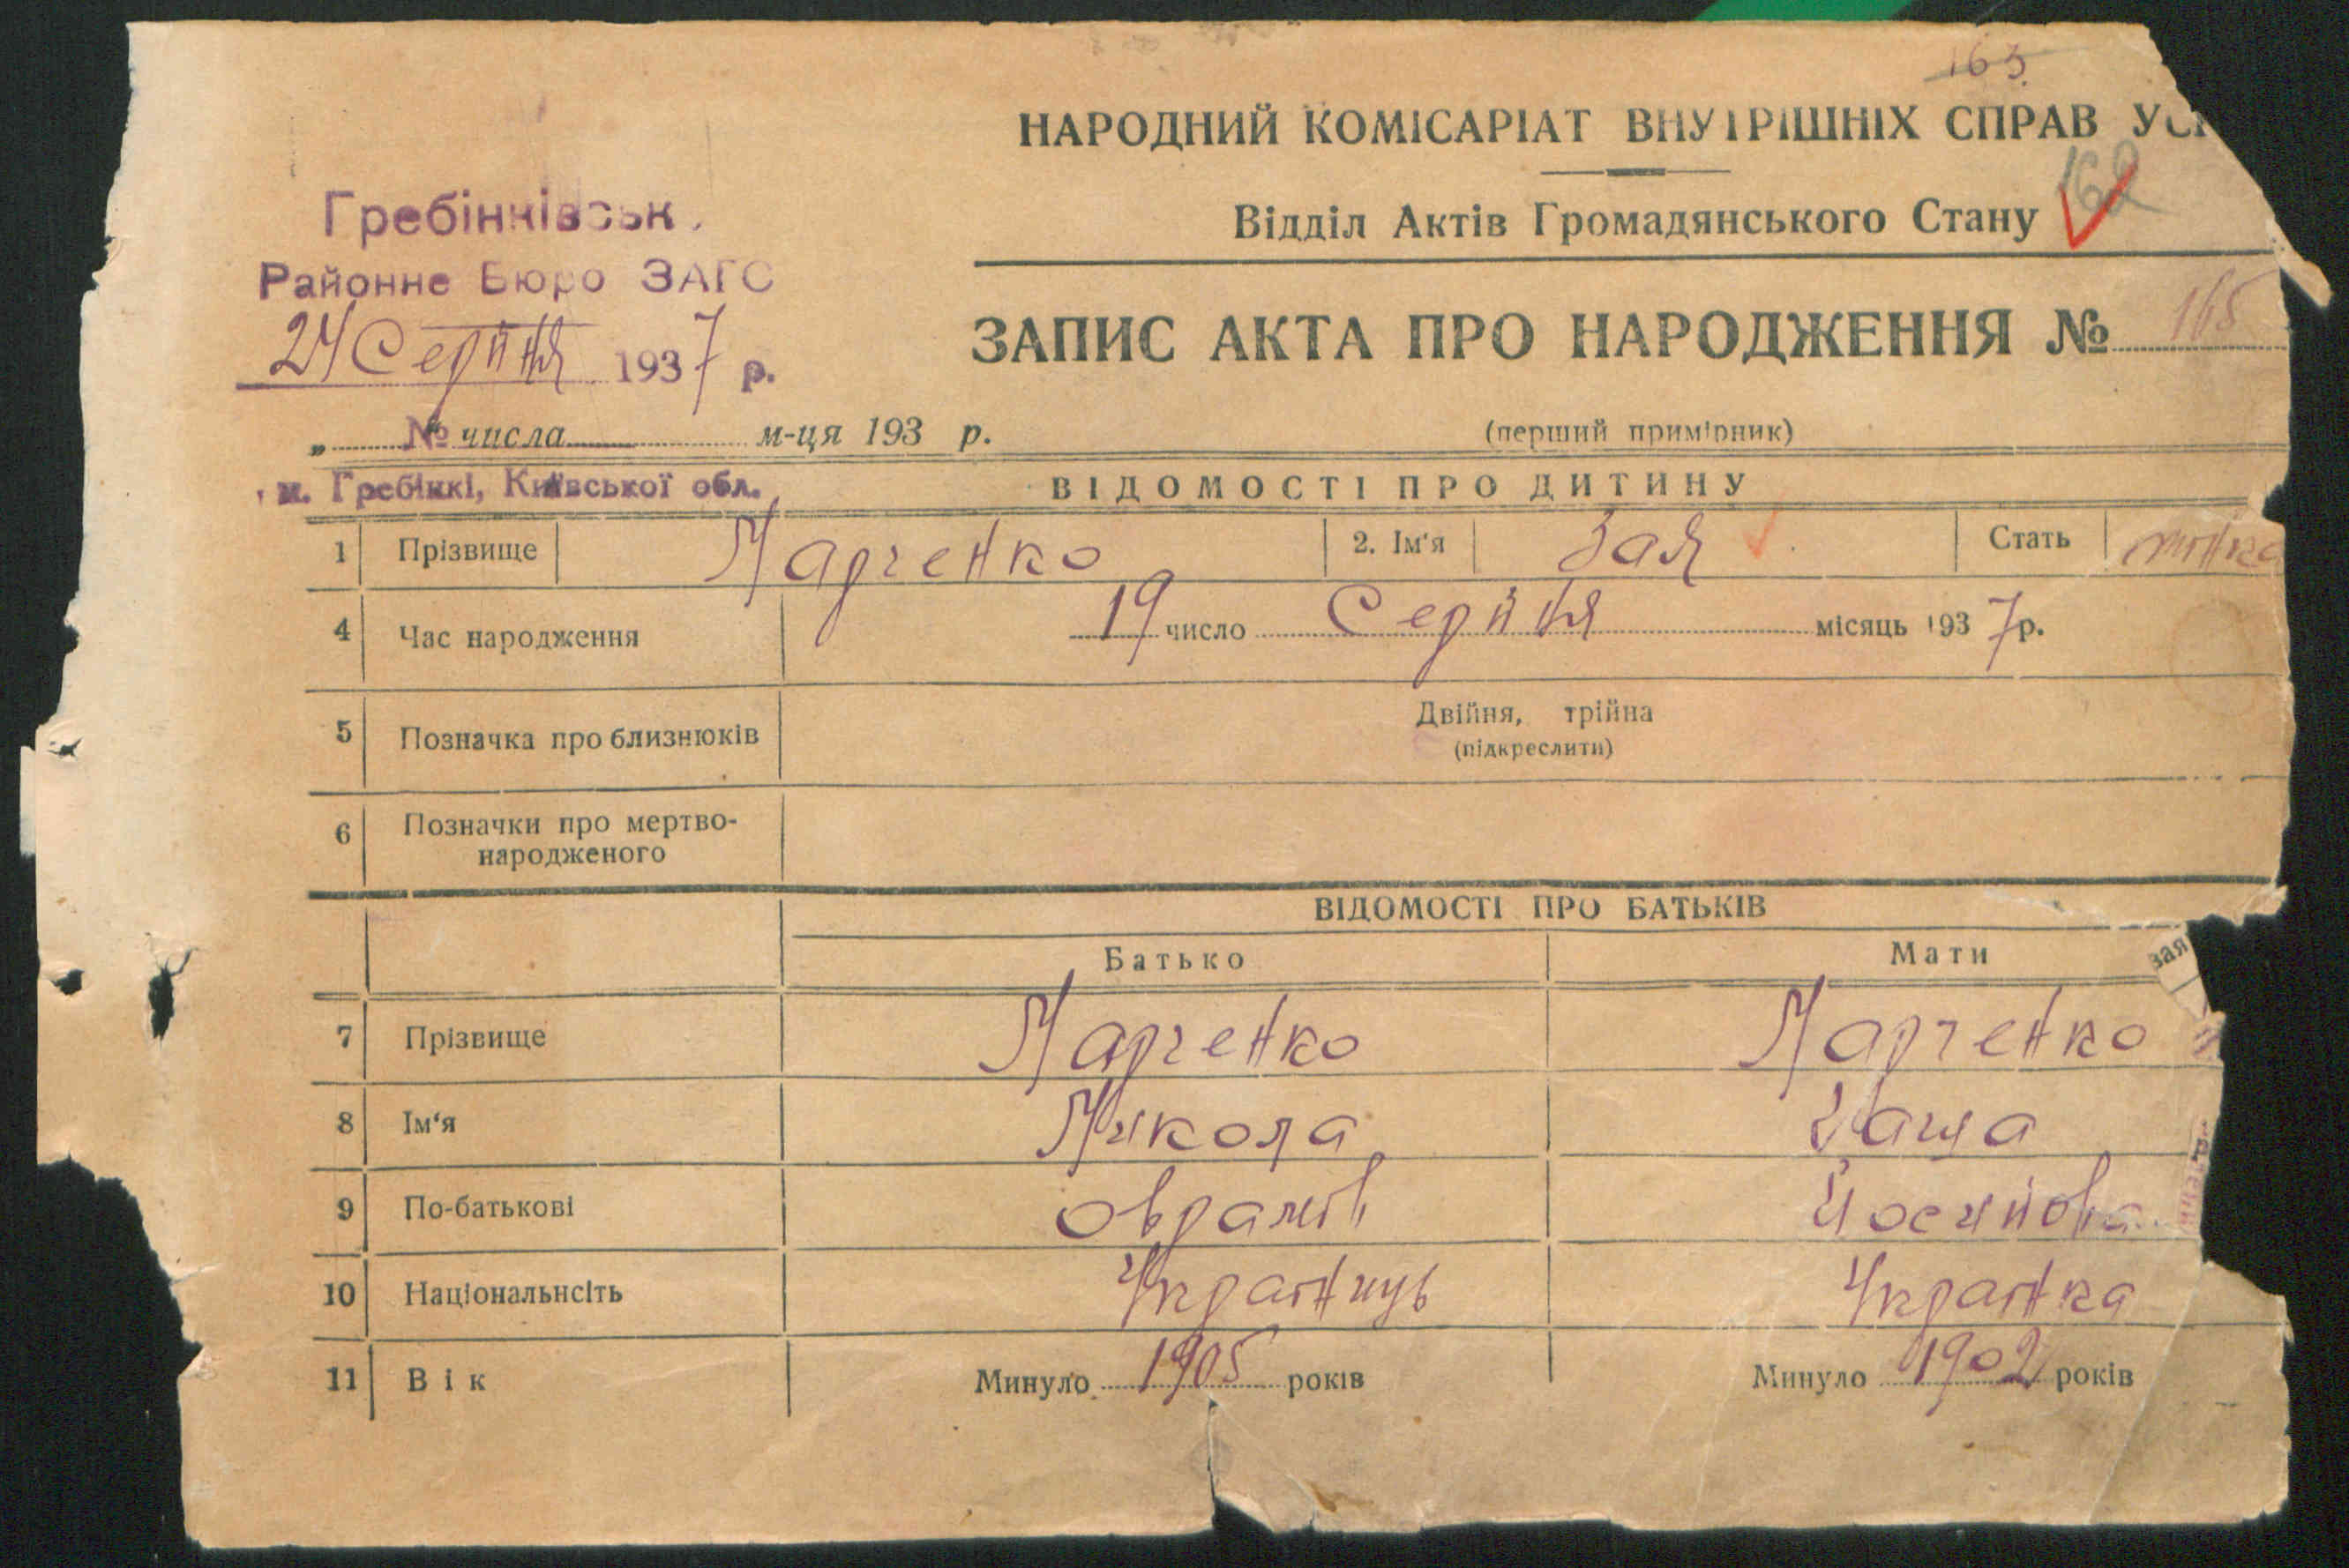 163
НАРОДНИЙ КОМІСАРІАТ ВНУТРІШНІХ СПРАВ УС
162
Гребінківськ.
Відділ Актів Громадянського Стану
Районне Бюро ЗАГС
24 Серпня 1937 р.
ЗАПИС АКТА ПРО НАРОДЖЕННЯ № 165
„ № числа м-ця 193 р.
(перший примірник)
м. Гребінкі, Київської обл.
ВІДОМОСТІ ПРО ДИТИНУ
1 Прізвище Марченко 2. Ім'я Зая Стать жінка
4 Час народження 19 число Серпня місяць 1937 р.
5 Позначка про близнюків Двійня, трійна
(підкреслити)
6 Позначки про мертво-
народженого
ВІДОМОСТІ ПРО БАТЬКІВ
Батько Мати
зая
7 Прізвище Марченко Марченко
8 Ім'я Микола
9 По-батькові Оврамів Йосипова
10 Національнсіть Украінець Украінка
11 Вік Минуло 1905 років Минуло 1902 років